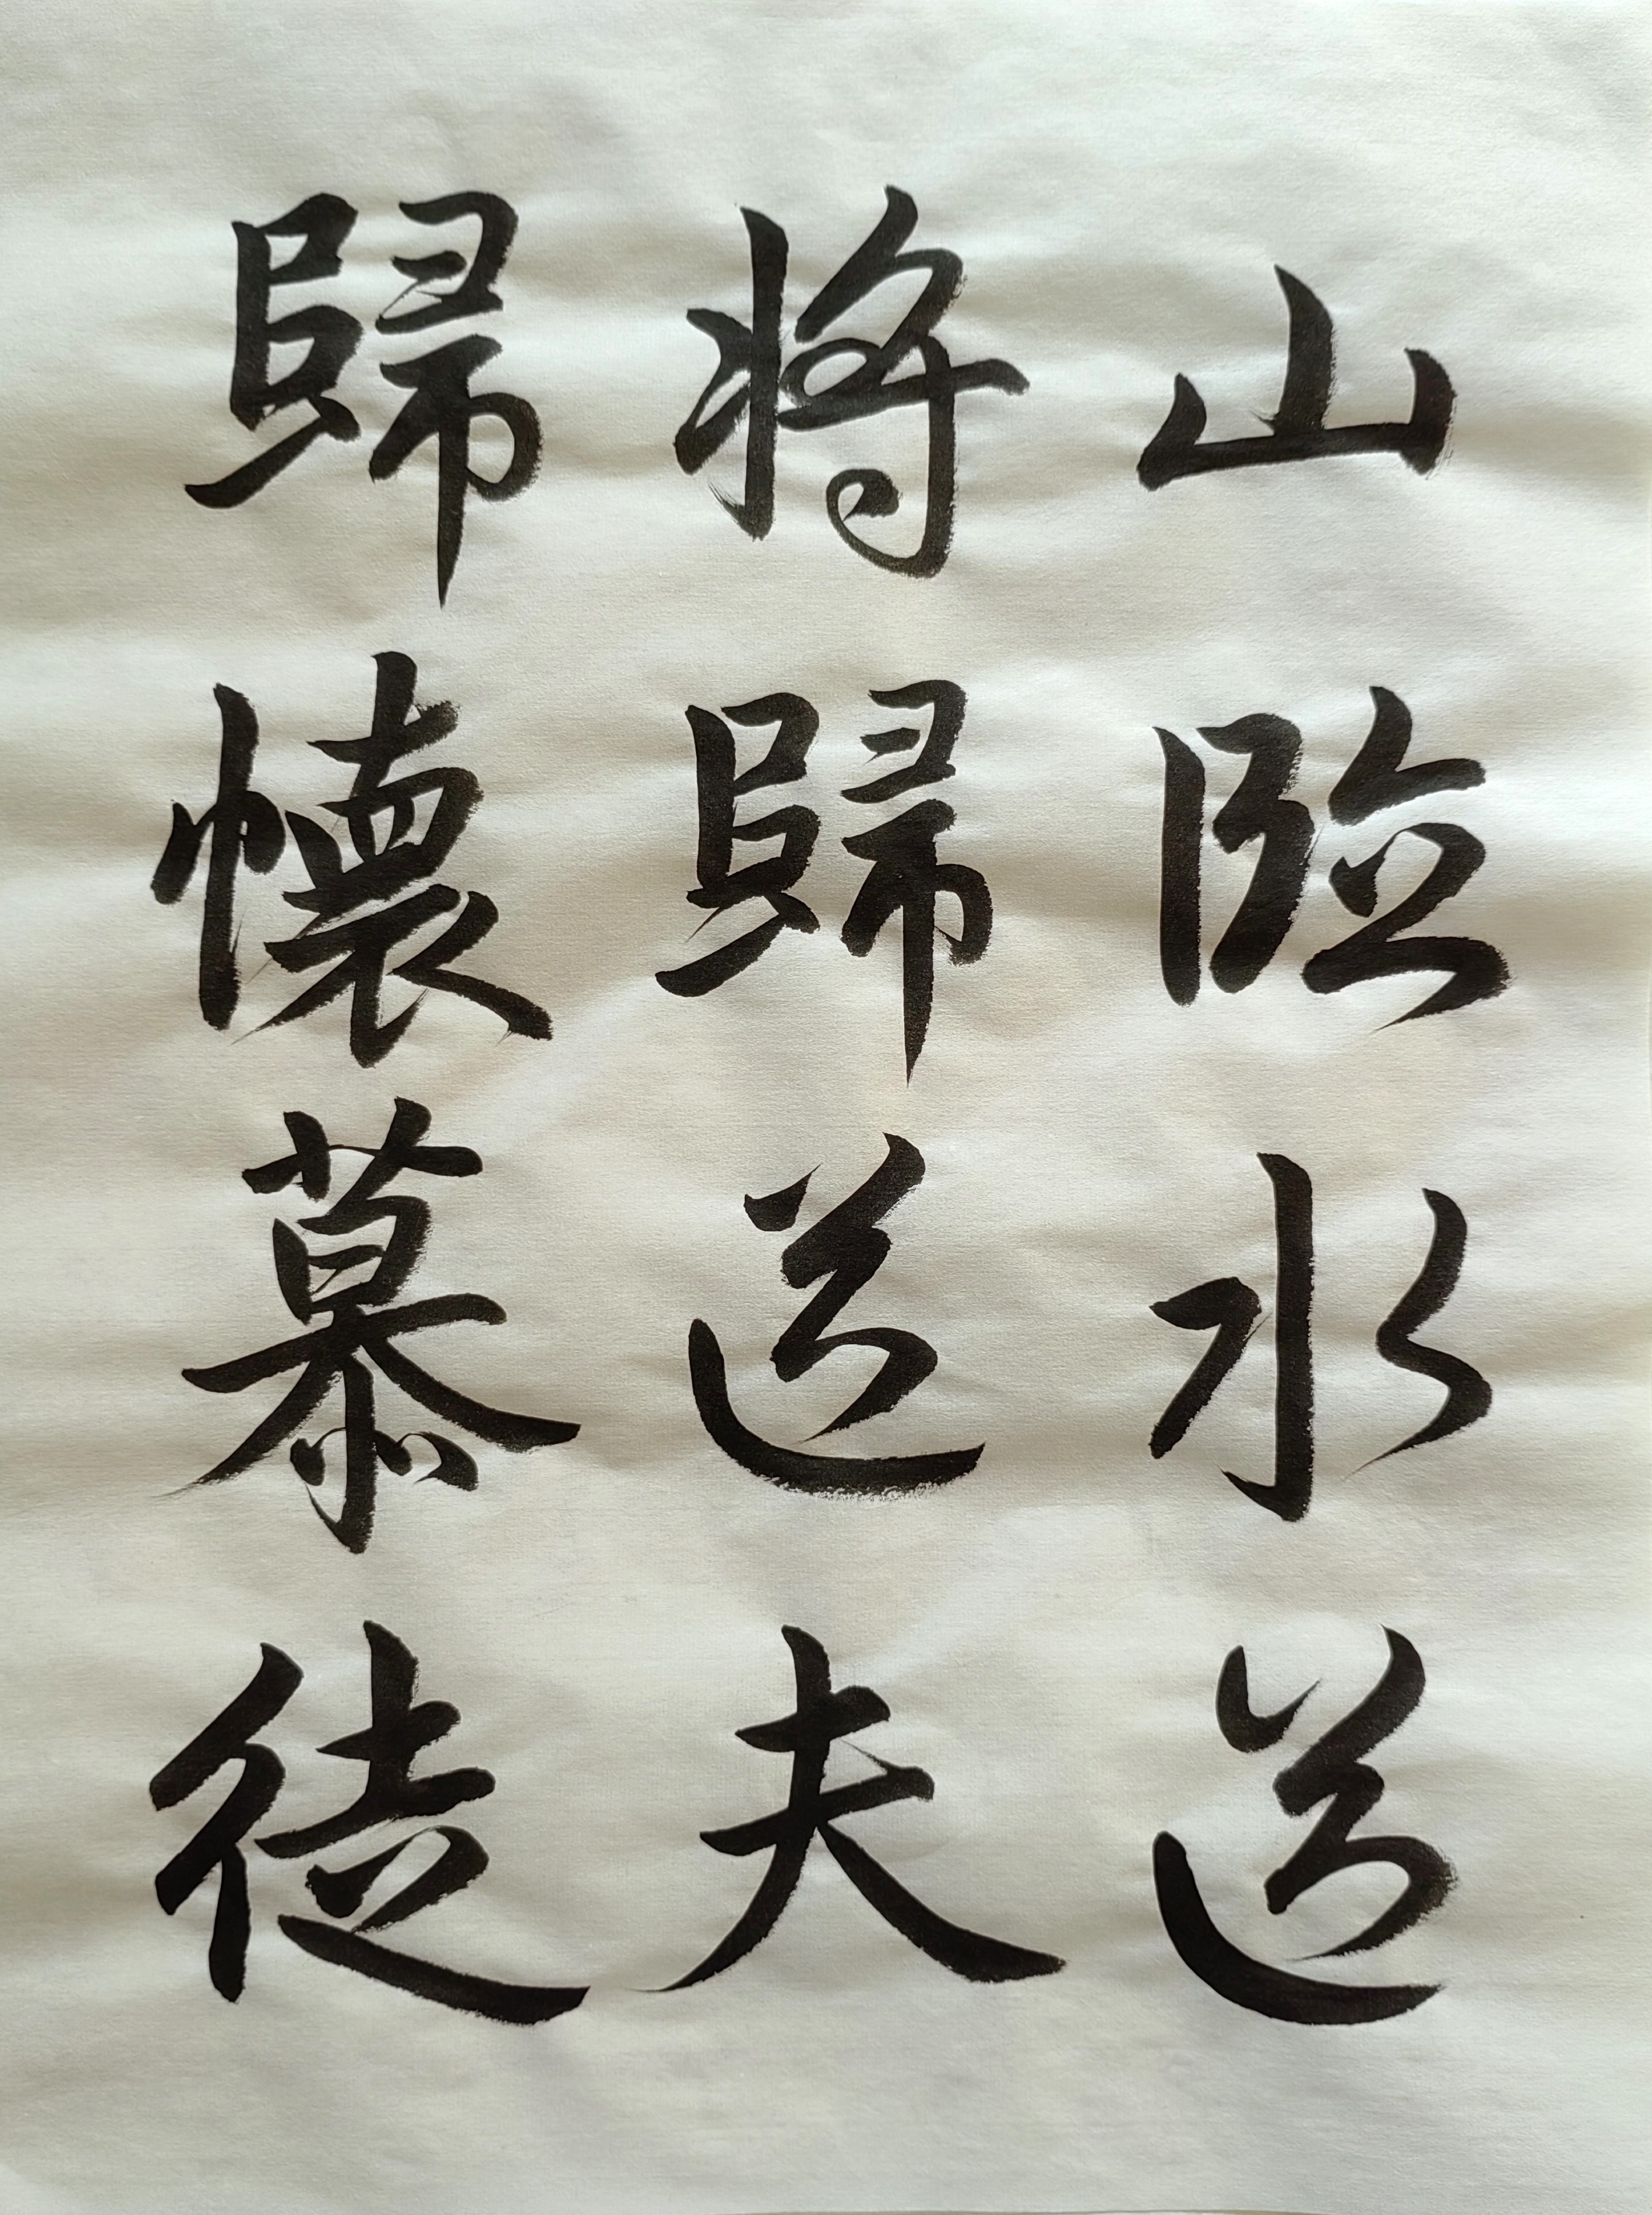 山臨水送
將歸送夫
歸懷慕徒